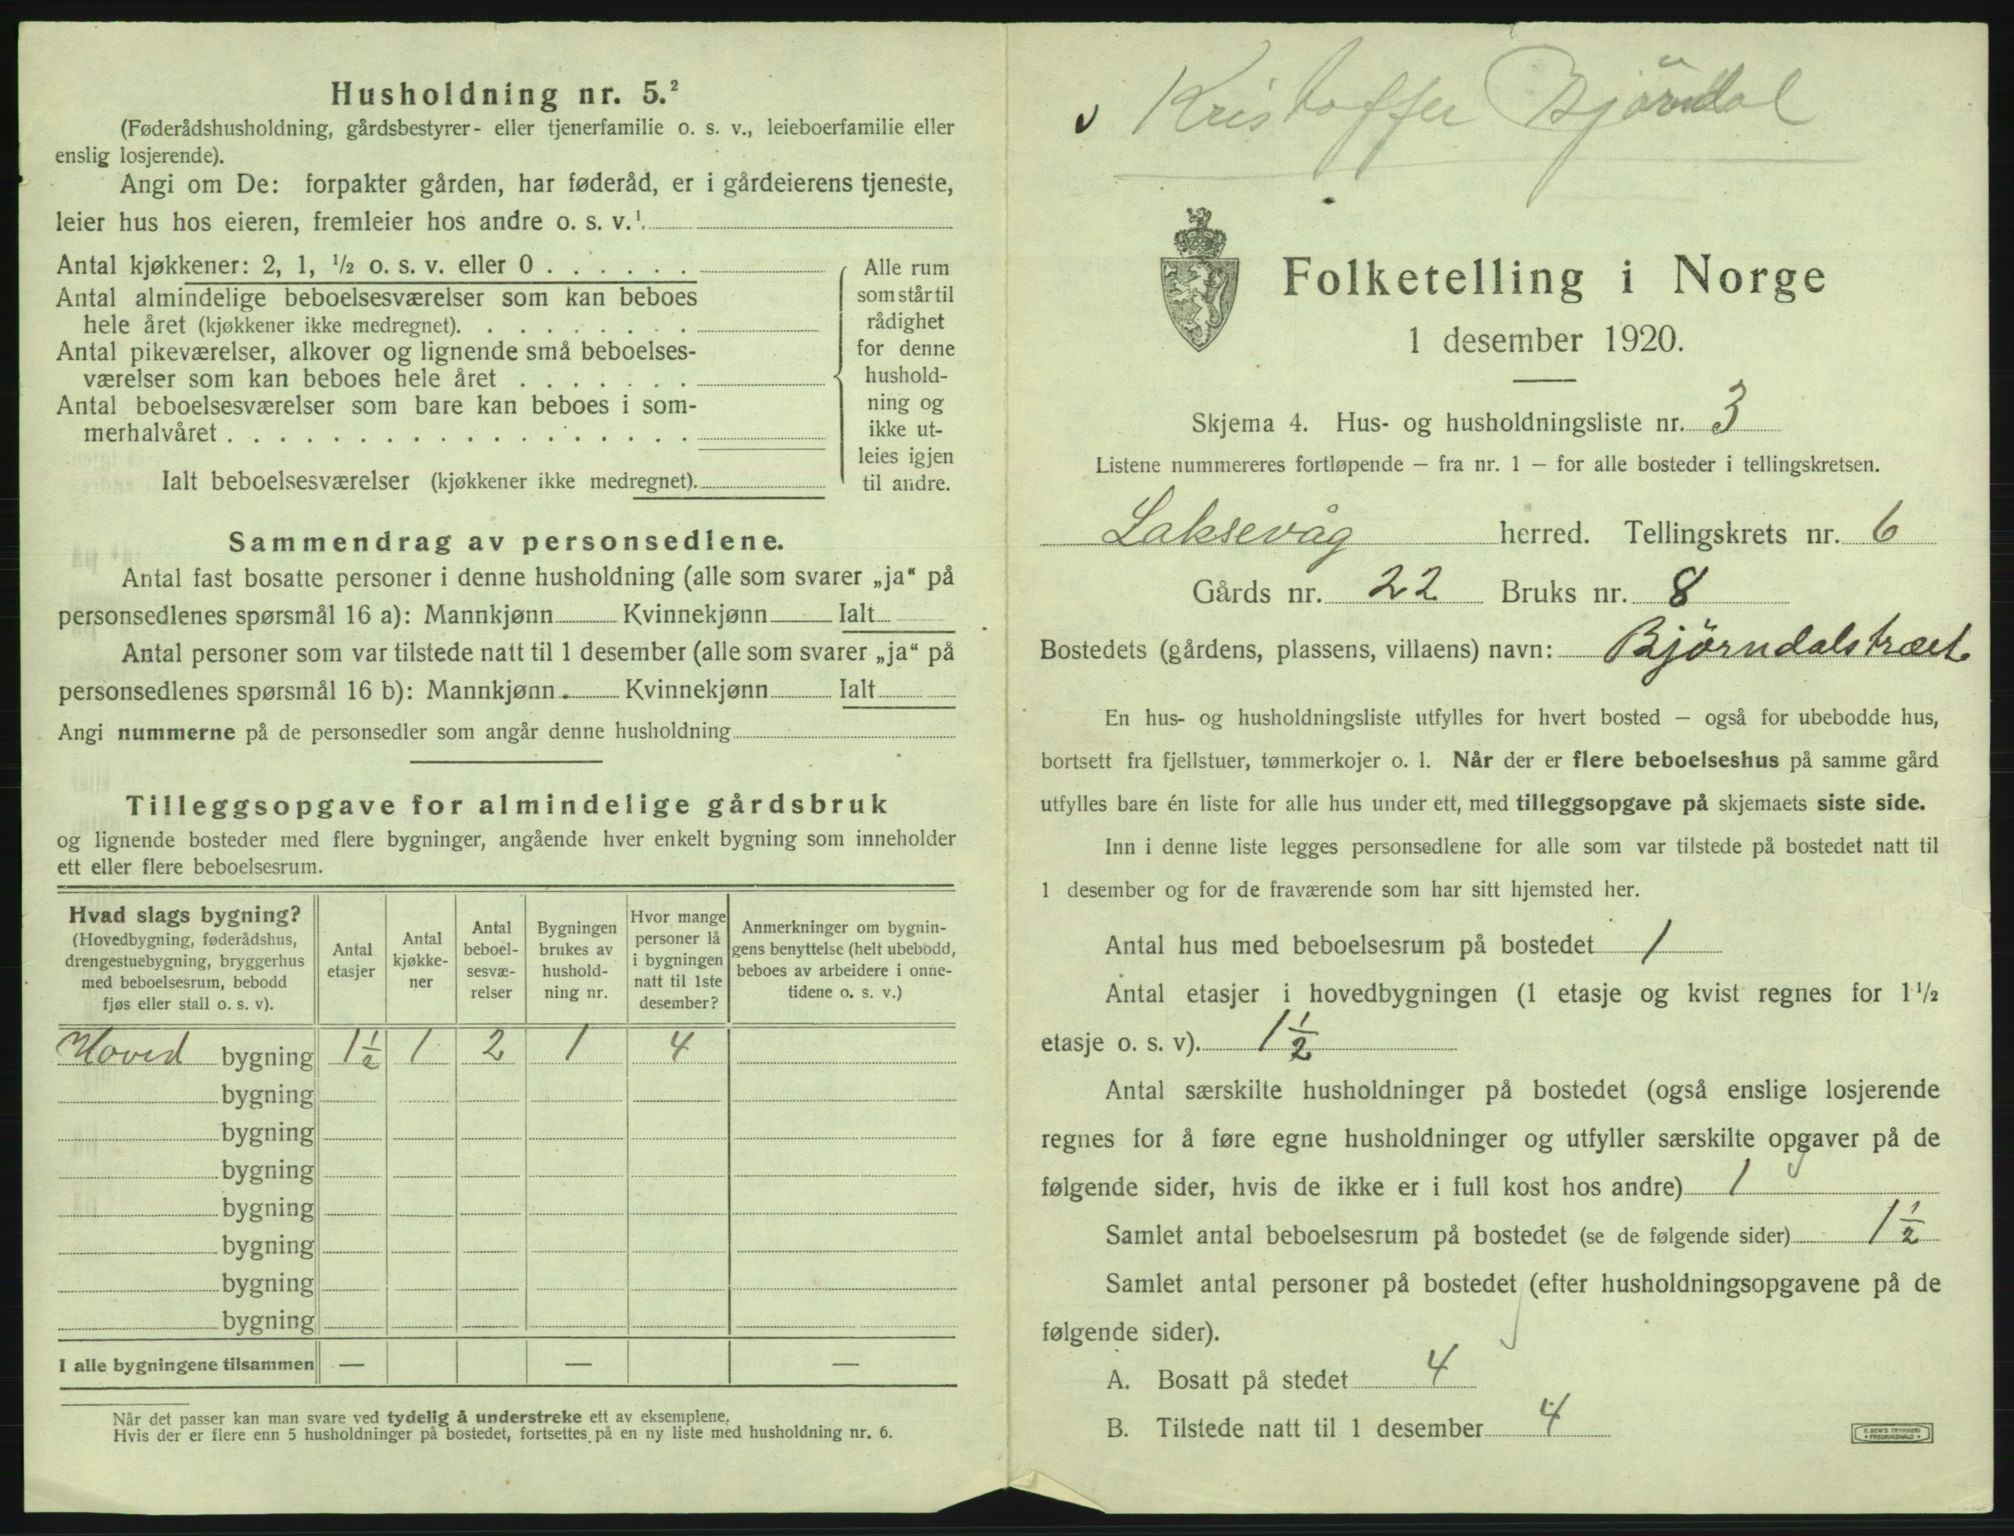 Husholdning nr. 5.²
(Føderådshusholdning, gårdsbestyrer- eller tjenerfamilie o. s. v., leieboerfamilie eller
enslig losjerende).
Angi om De: forpakter gården, har føderåd, er i gårdeierens tjeneste,
leier hus hos eieren, fremleier hos andre o. s. v.¹
Antal kjøkkener: 2, 1, ½ o. s. v. eller 0 . . . . . .
Antal almindelige beboelsesværelser som kan beboes
hele året (kjøkkener ikke medregnet). . . . . . . . .
Antal pikeværelser, alkover og lignende små beboelses-
værelser som kan beboes hele året . . . . . . .
Antal beboelsesværelser som bare kan beboes i som-
merhalvåret . . . . . . . . . . . . . . . . . .
Ialt beboelsesværelser (kjøkkener ikke medregnet).
Alle rum
som står til
rådighet
for denne
hushold-
ning og
ikke ut-
leies igjen
til andre.
Sammendrag av personsedlene.
Antal fast bosatte personer i denne husholdning (alle som svarer „ja“ på
personsedlenes spørsmål 16 a): Mannkjønn Kvinnekjønn Ialt
Antal personer som var tilstede natt til 1 desember (alle som svarer „ja“ på
personsedlenes spørsmål 16 b): Mannkjønn Kvinnekjønn Ialt
Angi nummerne på de personsedler som angår denne husholdning
Tilleggsopgave for almindelige gårdsbruk
og lignende bosteder med flere bygninger, angående hver enkelt bygning som inneholder
ett eller flere beboelsesrum.
Hvad slags bygning?
(Hovedbygning, føderådshus,
drengestuebygning, bryggerhus
med beboelsesrum, bebodd
fjøs eller stall o. s. v).
Antal
etasjer
Antal
kjøkke-
ner
Antal
beboel-
sesvæ-
relser
Bygningen
brukes av
hushold-
ning nr.
Hvor mange
personer lå
i bygningen
natt til 1ste
desember?
Anmerkninger om bygnin-
gens benyttelse (helt ubebodd,
beboes av arbeidere i onne-
tidene o. s. v.)
Hoved bygning 1½ 1 2 1 4
bygning
bygning
bygning
bygning
bygning
bygning
bygning
I alle bygningene tilsammen — — —
Når det passer kan man svare ved tydelig å understreke ett av eksemplene.
Hvis der er flere enn 5 husholdninger på bostedet, fortsettes på en ny liste med husholdning nr. 6.
Kristoffer Bjørndal
Folketelling i Norge
1 desember 1920.
Skjema 4. Hus- og husholdningsliste nr. 3
Listene nummereres fortløpende — fra nr. 1 — for alle bosteder i tellingskretsen.
Laksevåg herred. Tellingskrets nr. 6
Gårds nr. 22 Bruks nr. 8
Bostedets (gårdens, plassens, villaens) navn: Bjørndalstræet
En hus- og husholdningsliste utfylles for hvert bosted — også for ubebodde hus,
bortsett fra fjellstuer, tømmerkojer o. l. Når der er flere beboelseshus på samme gård
utfylles bare én liste for alle hus under ett, med tilleggsopgave på skjemaets siste side.
Inn i denne liste legges personsedlene for alle som var tilstede på bostedet natt til
1 desember og for de fraværende som har sitt hjemsted her.
Antal hus med beboelsesrum på bostedet 1
Antal etasjer i hovedbygningen (1 etasje og kvist regnes for 1½
etasje o. s. v). 1½
Antal særskilte husholdninger på bostedet (også enslige losjerende
regnes for å føre egne husholdninger og utfyller særskilte opgaver på de
følgende sider, hvis de ikke er i full kost hos andre) 1
Samlet antal beboelsesrum på bostedet (se de følgende sider) 1½
Samlet antal personer på bostedet (efter husholdningsopgavene på de
følgende sider).
A. Bosatt på stedet 4
B. Tilstede natt til 1 desember 4
E. SEM'S TRYKKERI
FREDRIKSHALD